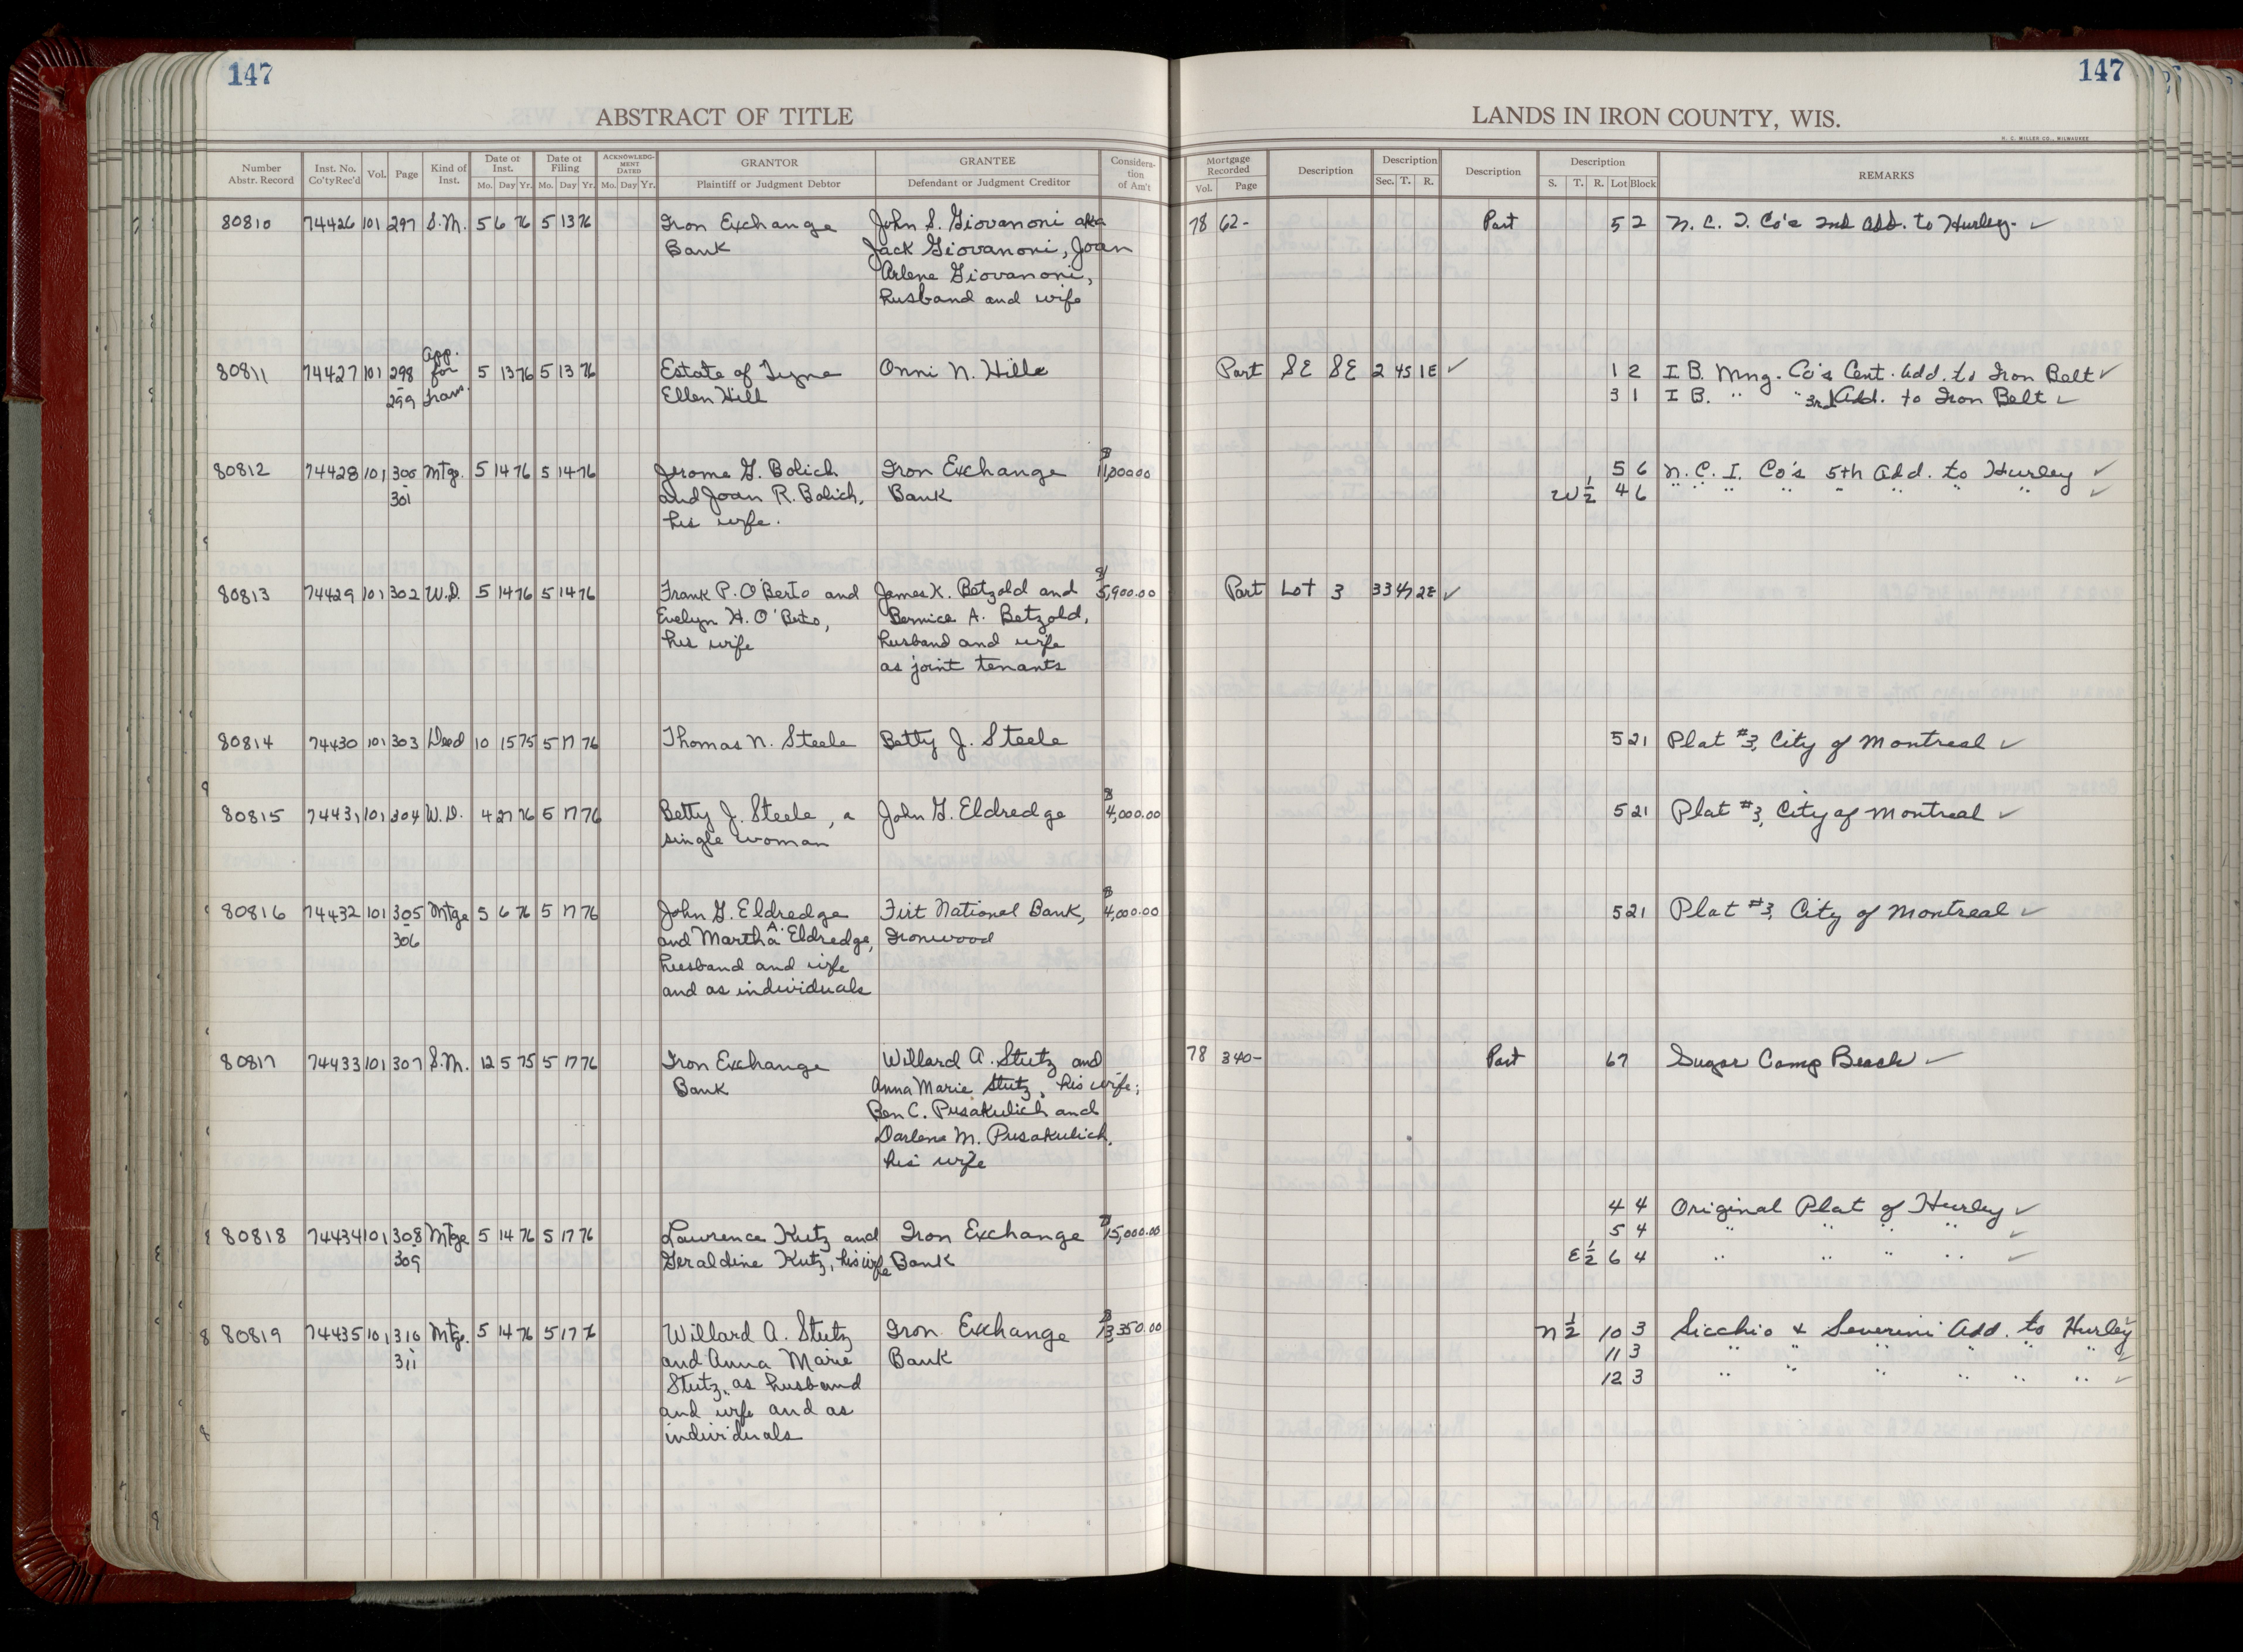 147
147
ABSTRACT OF TITLE
LANDS IN IRON COUNTY, WIS.
H. C. MILLER CO., MILWAUKEE
Number Abstr. Record | Inst. No. Co'tyRec'd | Vol. | Page | Kind of Inst. | Date of Inst. Mo. Day Yr. | Date of Filing Mo. Day Yr. | ACKNOWLEDGMENT DATED Mo. Day Yr. | GRANTOR Plaintiff or Judgment Debtor | GRANTEE Defendant or Judgment Creditor | Consideration of Am't | Mortgage Recorded Vol. Page | Description | Description Sec. T. R. | Description | Description S. T. R. Lot Block | REMARKS
80810 74426 101 297 S.M. 5 6 76 5 13 76 Iron Exchange John S. Giovanoni aka 78 62- Part 5 2 N. C. I. Co's 2nd Add. to Hurley- ✓
Bank Jack Giovanoni, Joan
Arlene Giovanoni,
husband and wife
App.
80811 74427 101 298 for 5 13 76 5 13 76 Estate of Tyne Onni N. Hill Part SE SE 2 45 1E ✓ 1 2 I B. Mng. Co's Cent. Add. to Iron Belt ✓
- 299 Tran. Ellen Hill 3 1 I B. " " 3rd Add. to Iron Belt ✓
80812 74428 101 300 Mtge. 5 14 76 5 14 76 Jerome G. Bolich Iron Exchange $ 5 6 N. C. I. Co's 5th Add. to Hurley ✓
- 301 and Joan R. Bolich, Bank W 1/2 4 6 " " " " " " " ✓
his wife.
80813 74429 101 302 W.D. 5 14 76 5 14 76 Frank P. O'Berto and James K. Betzold and $5,900.00 Part Lot 3 33 47 2E ✓
Evelyn H. O'Berto, Bernice A. Betzold,
his wife husband and wife
as joint tenants
80814 74430 101 303 Deed 10 15 75 5 17 76 Thomas N. Steele Betty J. Steele 5 21 Plat #3, City of Montreal ✓
80815 74431 101 304 W.D. 4 27 76 5 17 76 Betty J. Steele, a John G. Eldredge $4,000.00 5 21 Plat #3, City of Montreal ✓
single woman
80816 74432 101 305 Mtge 5 6 76 5 17 76 John G. Eldredge Firt National Bank, $4,000.00 5 21 Plat #3, City of Montreal ✓
- 306 and Martha A. Eldredge, Ironwood
husband and wife
and as individuals
80817 74433 101 307 S.M. 12 5 75 5 17 76 Iron Exchange Willard A. Stutz and 78 340- Part 67 Sugar Camp Beach ✓
Bank Anna Marie Stutz, his wife;
Ben C. Pusakulich and
Darlene M. Pusakulich,
his wife
4 4 Original Plat of Hurley ✓
80818 74434 101 308 Mtge 5 14 76 5 17 76 Lawrence Kutz and Iron Exchange $15,000.00 5 4 " " " " ✓
309 Geraldine Kutz, his wife Bank E 1/2 6 4 " " " " ✓
8 80819 74435 101 310 Mtge. 5 14 76 5 17 7 Willard A. Stutz Iron Exchange $13,350.00 N 1/2 10 3 Sicchio & Severini Add. to Hurley ✓
311 and Anna Marie Bank 11 3 " " " " " " ✓
Stutz, as husband 12 3 " " " " " " ✓
and wife and as
individuals